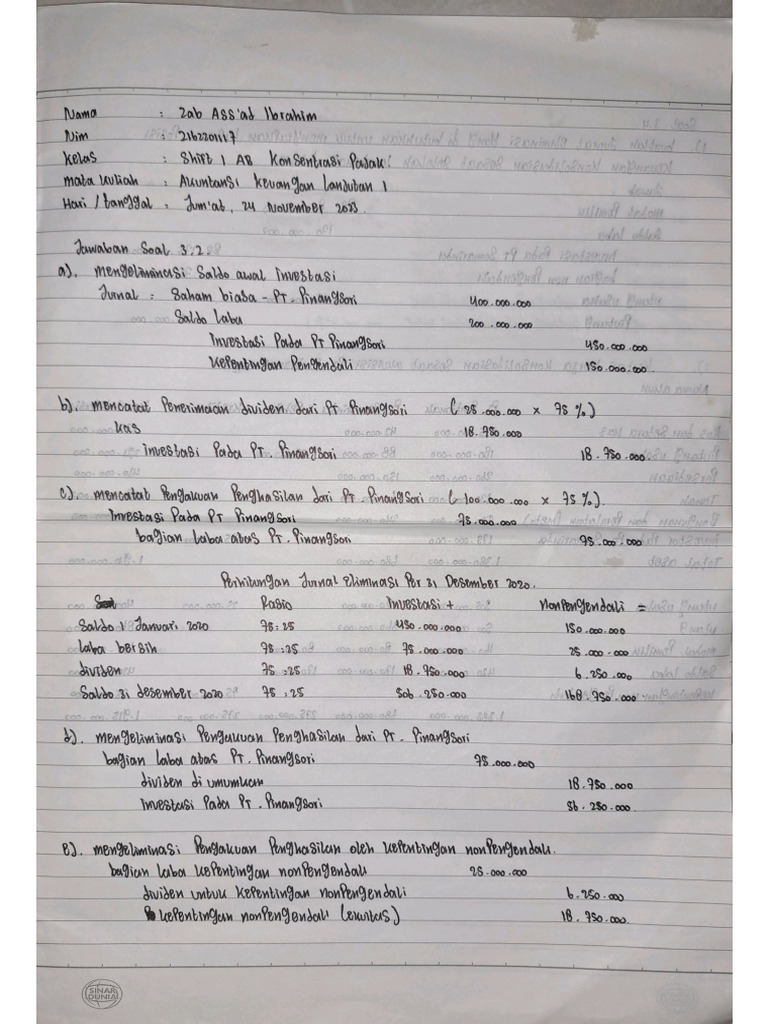 Nama : Zab Ass'ad Ibrahim
Nim : 2162201117
Kelas : Shift 1 AB Konsentrasi Pajak
Mata Kuliah : Akuntansi Keuangan Lanjutan 1
Hari / tanggal : Jum'at, 24 November 2023
Jawaban Soal 3.2
a). Mengeliminasi Saldo awal investasi
Jurnal : Saham biasa - PT. Pinangsori 400.000.000
Saldo Laba 200.000.000
Investasi Pada PT Pinangsori 450.000.000
Kepentingan Pengendali 150.000.000.
b). mencatat Penerimaan dividen dari PT Pinangsori ( 25.000.000 x 75 %)
kas 18.750.000
investasi Pada PT. Pinangsori 18.750.000.
c). mencatat Pengakuan Penghasilan dari PT. Pinangsori ( 100.000.000 x 75 %).
Investasi Pada PT Pinangsori 75.000.000
bagian laba atas PT. Pinangsori 75.000.000
Perhitungan Jurnal Eliminasi Per 31 Desember 2020.
Rasio Investasi + nonPengendali =
Saldo 1 Januari 2020 75:25 450.000.000 150.000.000
laba bersih 75:25 75.000.000 25.000.000
dividen 75:25 18.750.000 6.250.000
Saldo 31 desember 2020 75:25 506.250.000 168.750.000
d). mengeliminasi Pengakuan Penghasilan dari PT. Pinangsori
bagian laba atas PT. Pinangsori 75.000.000
dividen di umumkan 18.750.000
investasi Pada PT. Pinangsori 56.250.000
e). mengeliminasi Pengakuan Penghasilan oleh kepentingan nonPengendali.
bagian laba kepentingan nonPengendali 25.000.000
dividen untuk kepentingan nonPengendali 6.250.000
kepentingan nonPengendali (ekuitas) 18.750.000.
SINAR DUNIA